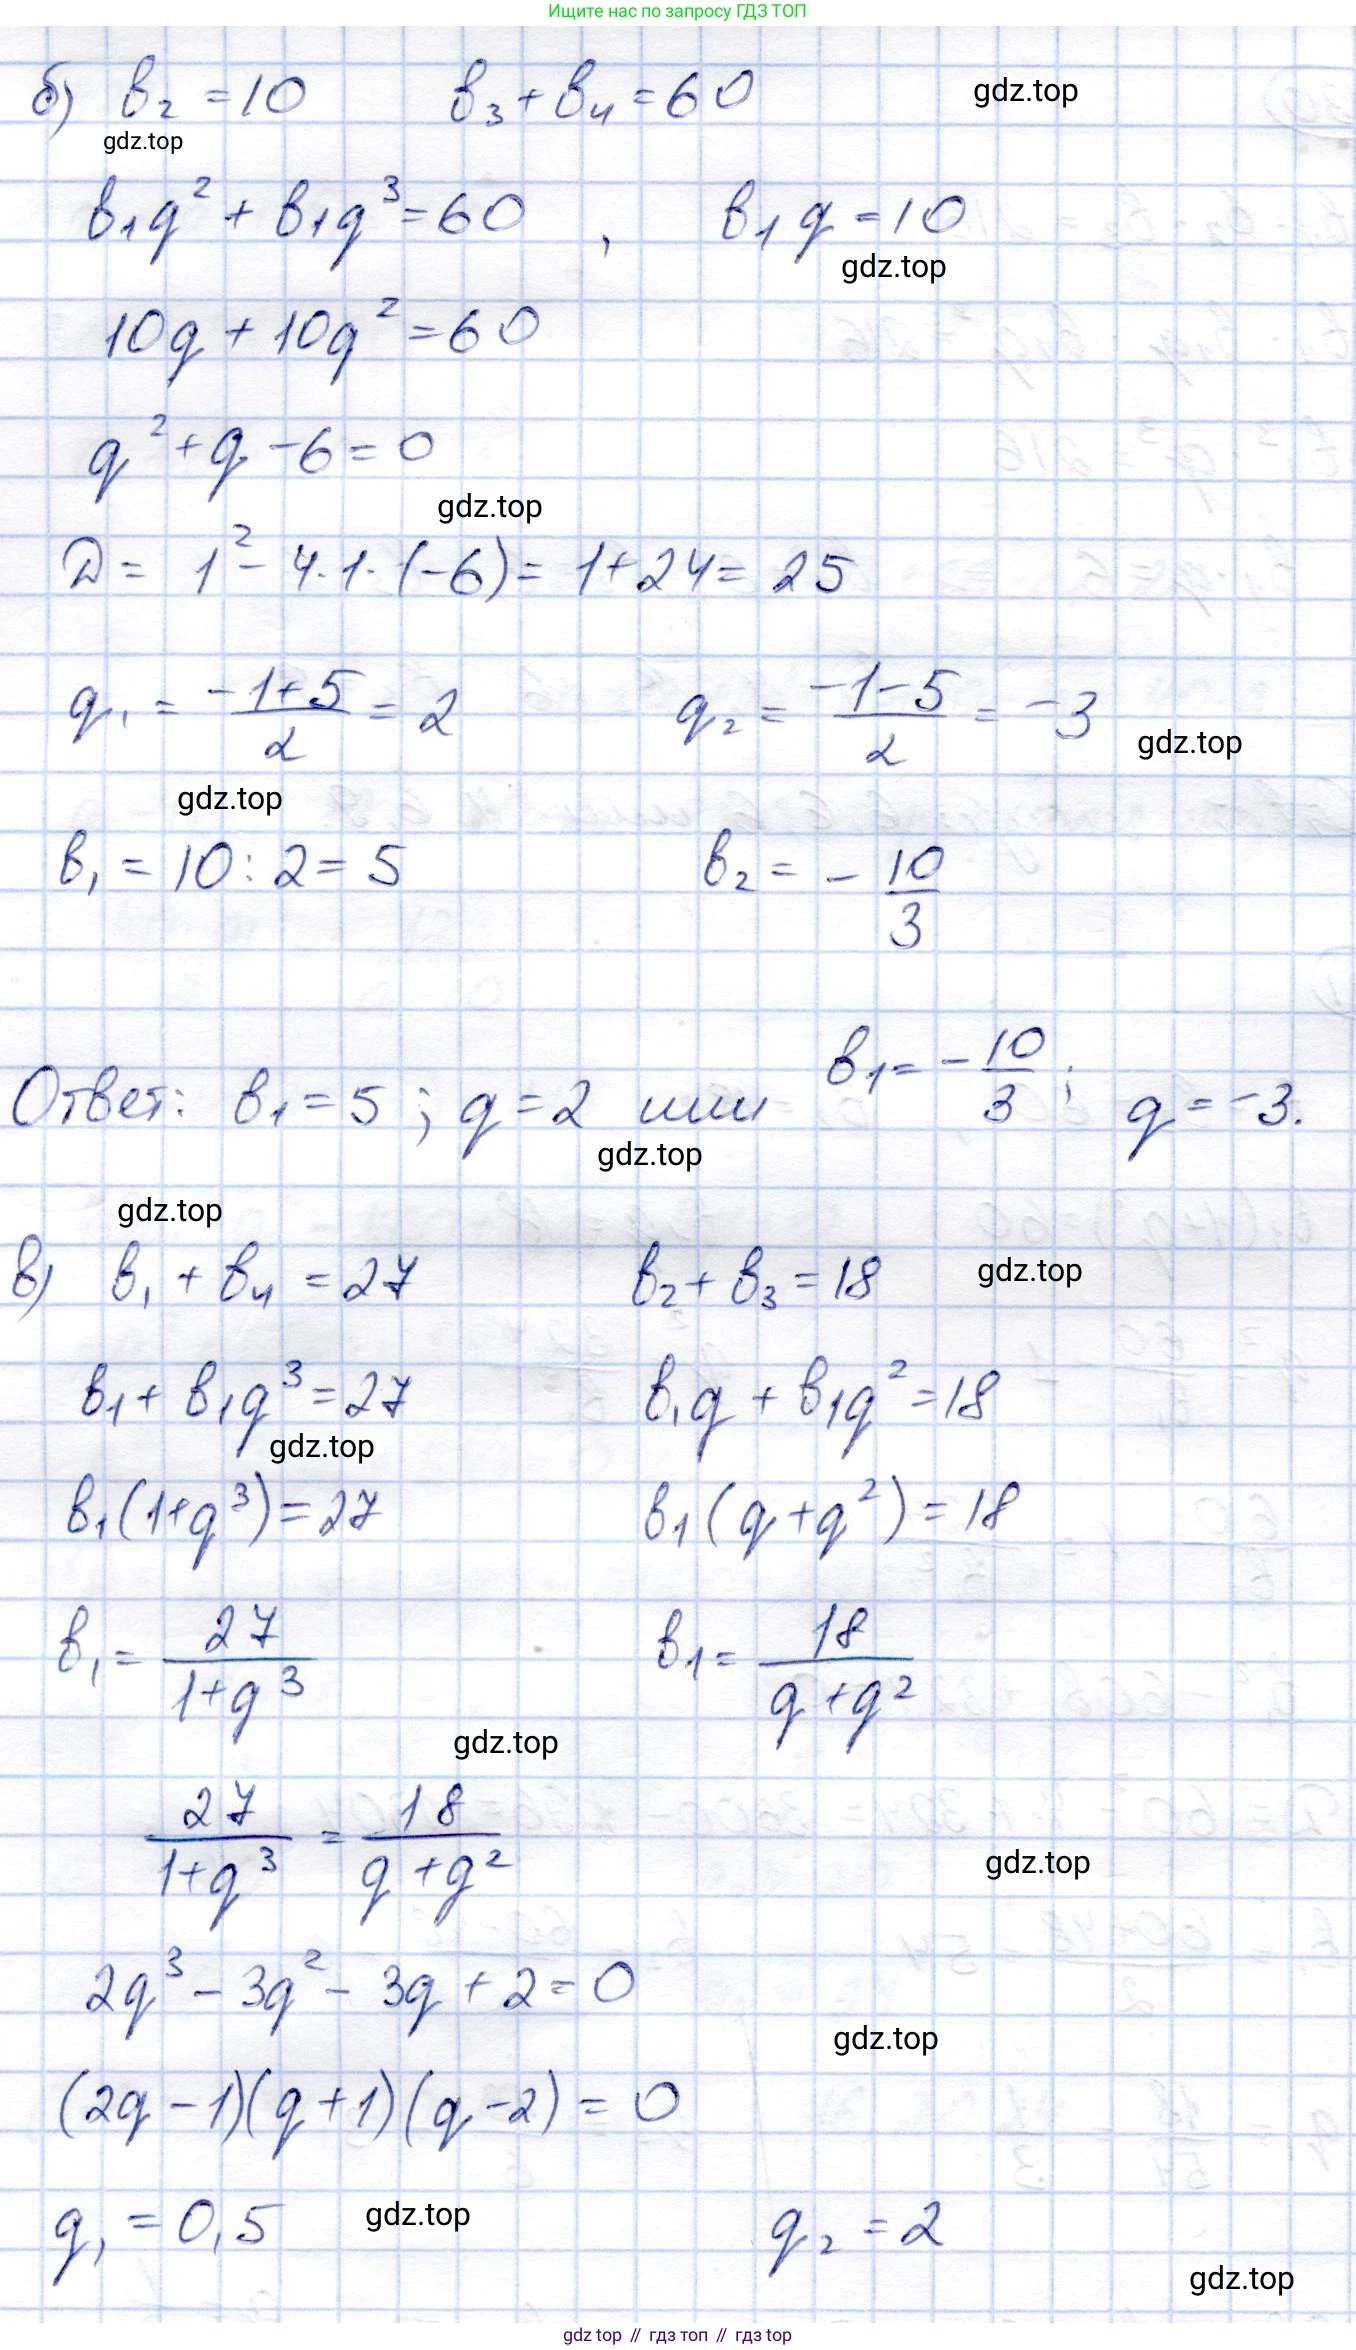 Ищите нас по запросу ГДЗ ТОП
б) b₂ = 10   b₃ + b₄ = 60   gdz.top
gdz.top
b₁q² + b₁q³ = 60 ,   b₁q = 10
gdz.top
10q + 10q² = 60
q² + q - 6 = 0
gdz.top
D = 1² - 4·1·(-6) = 1 + 24 = 25
q₁ = (-1+5)/2 = 2   q₂ = (-1-5)/2 = -3
gdz.top
gdz.top
b₁ = 10 : 2 = 5   b₂ = -10/3
Ответ: b₁ = 5 ; q = 2 или b₁ = -10/3 ; q = -3.
gdz.top
gdz.top
в) b₁ + b₄ = 27   b₂ + b₃ = 18   gdz.top
b₁ + b₁q³ = 27   b₁q + b₁q² = 18
gdz.top
b₁(1+q³) = 27   b₁(q+q²) = 18
b₁ = 27/(1+q³)   b₁ = 18/(q+q²)
gdz.top
27/(1+q³) = 18/(q+q²)
gdz.top
2q³ - 3q² - 3q + 2 = 0
gdz.top
(2q-1)(q+1)(q-2) = 0
q₁ = 0,5   gdz.top   q₂ = 2
gdz.top
gdz top // гдз топ // gdz top